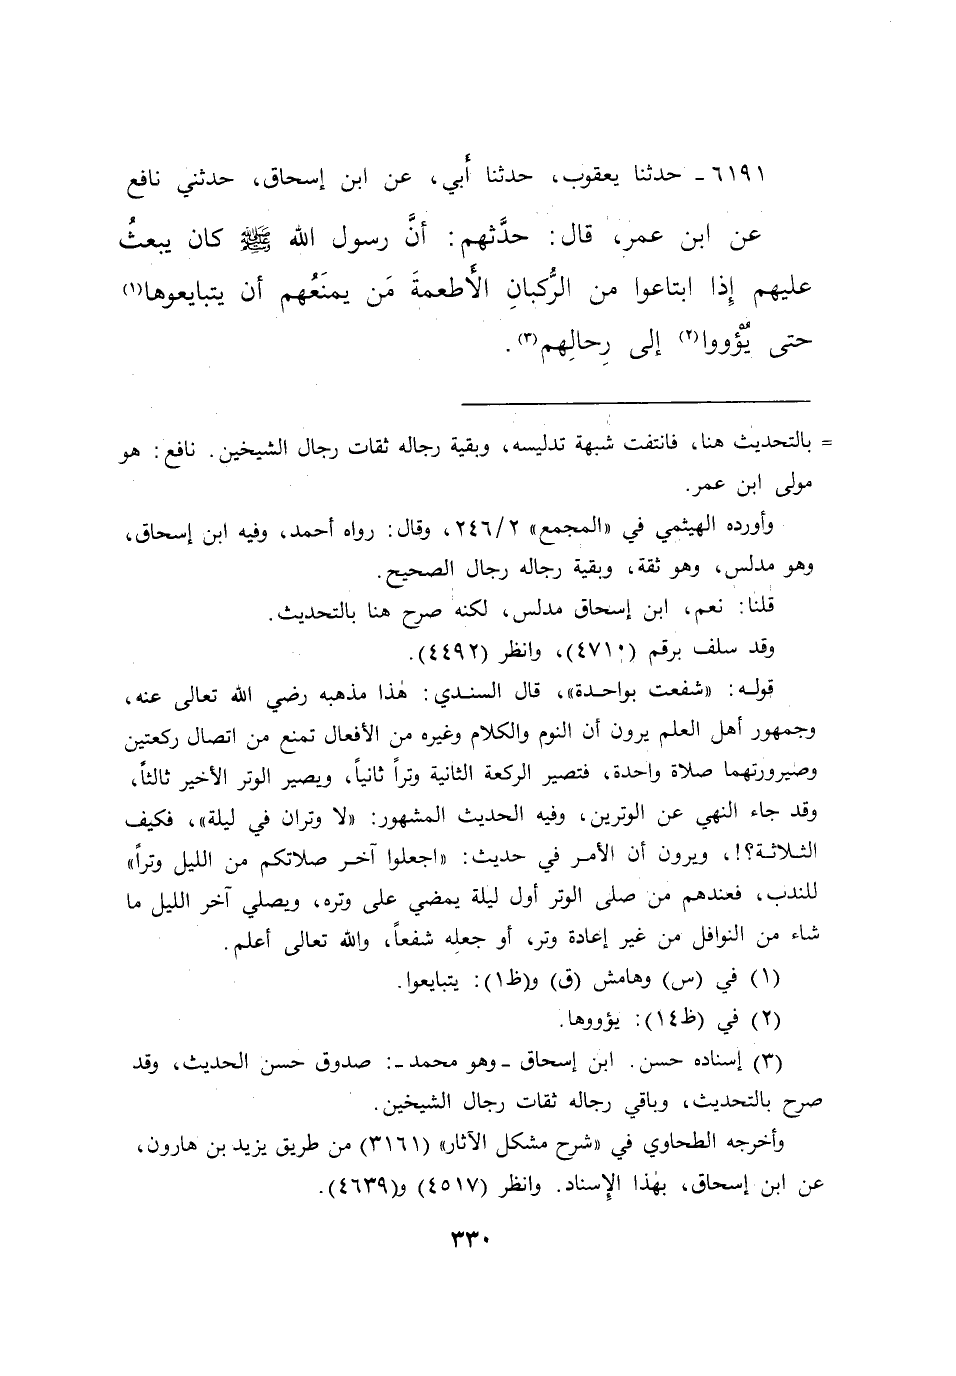 ٦١٩١ ـ حدثنا يعقوب، حدثنا أَبي، عن ابن إسحاق، حدثني نافع
عن ابن عمر، قال: حدَّثهم: أنَّ رسول الله ﷺ كان يبعثُ
عليهم إِذا ابتاعوا من الرُّكبانِ الأَطعمةَ مَن يمنَعُهم أن يتبايعوها(١)
حتى يُؤْووا(٢) إلى رِحالِهم(٣).
= بالتحديث هنا، فانتفت شبهة تدليسه، وبقية رجاله ثقات رجال الشيخين. نافع: هو
مولى ابن عمر.
وأورده الهيثمي في «المجمع» ٢٤٦/٢، وقال: رواه أحمد، وفيه ابن إسحاق،
وهو مدلس، وهو ثقة، وبقية رجاله رجال الصحيح.
قلنا: نعم، ابن إسحاق مدلس، لكنه صرح هنا بالتحديث.
وقد سلف برقم (٤٧١٠)، وانظر (٤٤٩٢).
قولـه: «شفعت بواحـدة»، قال السنـدي: هٰذا مذهبه رضي الله تعالى عنه،
وجمهور أهل العلم يرون أن النوم والكلام وغيره من الأفعال تمنع من اتصال ركعتين
وصيرورتهما صلاة واحدة، فتصير الركعة الثانية وتراً ثانياً، ويصير الوتر الأخير ثالثاً،
وقد جاء النهي عن الوترين، وفيه الحديث المشهور: «لا وتران في ليلة»، فكيف
الثـلاثـة؟!، ويرون أن الأمـر في حديث: «اجعلوا آخـر صلاتكم من الليل وتراً»
للندب، فعندهم من صلى الوتر أول ليلة يمضي على وتره، ويصلي آخر الليل ما
شاء من النوافل من غير إعادة وتر، أو جعلِه شفعاً، والله تعالى أعلم.
(١) في (س) وهامش (ق) و(ظ١): يتبايعوا.
(٢) في (ظ١٤): يؤووها.
(٣) إسناده حسن. ابن إسحاق ـ وهو محمد ـ: صدوق حسن الحديث، وقد
صرح بالتحديث، وباقي رجاله ثقات رجال الشيخين.
وأخرجه الطحاوي في «شرح مشكل الآثار» (٣١٦١) من طريق يزيد بن هارون،
عن ابن إسحاق، بهٰذا الإِسناد. وانظر (٤٥١٧) و(٤٦٣٩).
٣٣٠